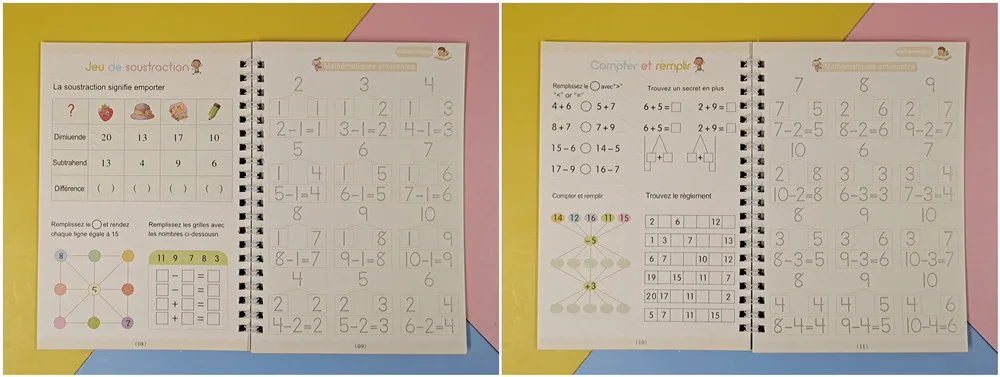 Jeu de soustraction
La soustraction signifie emporter
?
Dimiuende 20 13 17 10
Subtrahend 13 4 9 6
Différence ( ) ( ) ( ) ( )
Remplissez le ○ et rendez
chaque ligne égale à 15
8
5
7
Remplissez les grilles avec
les nombres ci-dessousn
11 9 7 8 3
□ - □ = □
□ - □ = □
□ + □ = □
□ + □ = □
(08)
Mathématiques amusantes
2 3 4
1 1 1 2 1 3
2-1=1 3-1=2 4-1=3
5 6 7
1 4 1 5 1 6
5-1=4 6-1=5 7-1=6
8 9 10
1 7 1 8 1 9
8-1=7 9-1=8 10-1=9
4 5 6
2 2 2 3 2 4
4-2=2 5-2=3 6-2=4
(09)
Compter et remplir
Remplissez le ○ avec">"
"<" or "="
4+6 ○ 5+7
8+7 ○ 7+9
15-6 ○ 14-5
17-9 ○ 16-7
Trouvez un secret en plus
6+5=□ 2+9=□
6+5=□ 2+9=□
□+□ □+□
Compter et remplir
14 12 16 11 15
-5
+3
Trouvez le règlement
2 6 12
1 3 7 13
6 7 10 12
19 15 11 7
20 17 11 2
5 7 11 15
(10)
Mathématiques amusantes
7 8 9
2 5 2 6 2 7
7-2=5 8-2=6 9-2=7
10 6 7
2 8 3 3 3 4
10-2=8 6-3=3 7-3=4
8 9 10
3 5 3 6 3 7
8-3=5 9-3=6 10-3=7
8 9 10
4 4 4 5 4 6
8-4=4 9-4=5 10-4=6
(11)